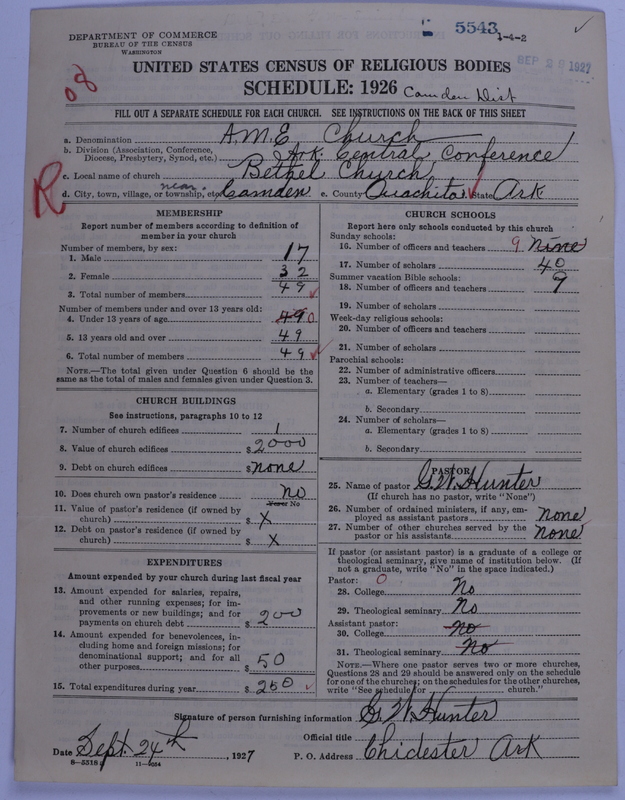 DEPARTMENT OF COMMERCE
BUREAU OF THE CENSUS
WASHINGTON
5543
1-4-2
SEP 29 1927
UNITED STATES CENSUS OF RELIGIOUS BODIES
SCHEDULE: 1926 Camden Dist
FILL OUT A SEPARATE SCHEDULE FOR EACH CHURCH. SEE INSTRUCTIONS ON THE BACK OF THIS SHEET
a. Denomination A.M.E Church
b. Division (Association, Conference, Diocese, Presbytery, Synod, etc.) Ark Central Conference
c. Local name of church Bethel Church
d. City, town, village, or township, etc. near Camden e. County Ouachita f. State Ark
MEMBERSHIP
Report number of members according to definition of
member in your church
Number of members, by sex:
1. Male 17
2. Female 32
3. Total number of members 49
Number of members under and over 13 years old:
4. Under 13 years of age 49 0
5. 13 years old and over 49
6. Total number of members 49
NOTE.—The total given under Question 6 should be
same as the total of males and females given under Question 3.
CHURCH BUILDINGS
See instructions, paragraphs 10 to 12
7. Number of church edifices 1
8. Value of church edifices $2000
9. Debt on church edifices $none
10. Does church own pastor's residence no
Yes or No
11. Value of pastor's residence (if owned by
church) $ X
12. Debt on pastor's residence (if owned by
church) $ X
EXPENDITURES
Amount expended by your church during last fiscal year
13. Amount expended for salaries, repairs,
and other running expenses; for im-
provements or new buildings; and for
payments on church debt $ 200
14. Amount expended for benevolences, in-
cluding home and foreign missions; for
denominational support; and for all
other purposes $ 50
15. Total expenditures during year $ 250
CHURCH SCHOOLS
Report here only schools conducted by this church
Sunday schools:
16. Number of officers and teachers 9 nine
17. Number of scholars 40
Summer vacation Bible schools:
18. Number of officers and teachers 9
19. Number of scholars
Week-day religious schools:
20. Number of officers and teachers
21. Number of scholars
Parochial schools:
22. Number of administrative officers
23. Number of teachers—
a. Elementary (grades 1 to 8)
b. Secondary
24. Number of scholars—
a. Elementary (grades 1 to 8)
b. Secondary
PASTOR
25. Name of pastor G.W. Hunter
(If church has no pastor, write "None")
26. Number of ordained ministers, if any, em-
ployed as assistant pastors none
27. Number of other churches served by the
pastor or his assistants none
If pastor (or assistant pastor) is a graduate of a college or
theological seminary, give name of institution below. (If
not a graduate, write "No" in the space indicated.)
Pastor: 0
28. College No
29. Theological seminary No
Assistant pastor:
30. College No
31. Theological seminary No
NOTE.—Where one pastor serves two or more churches,
Questions 28 and 29 should be answered only on the schedule
for one of the churches; on the schedules for the other churches,
write "See schedule church."
Signature of person furnishing information G. W. Hunter
Official title
Date Sept. 24th, 1927 P. O. Address Chidester Ark
11—9654